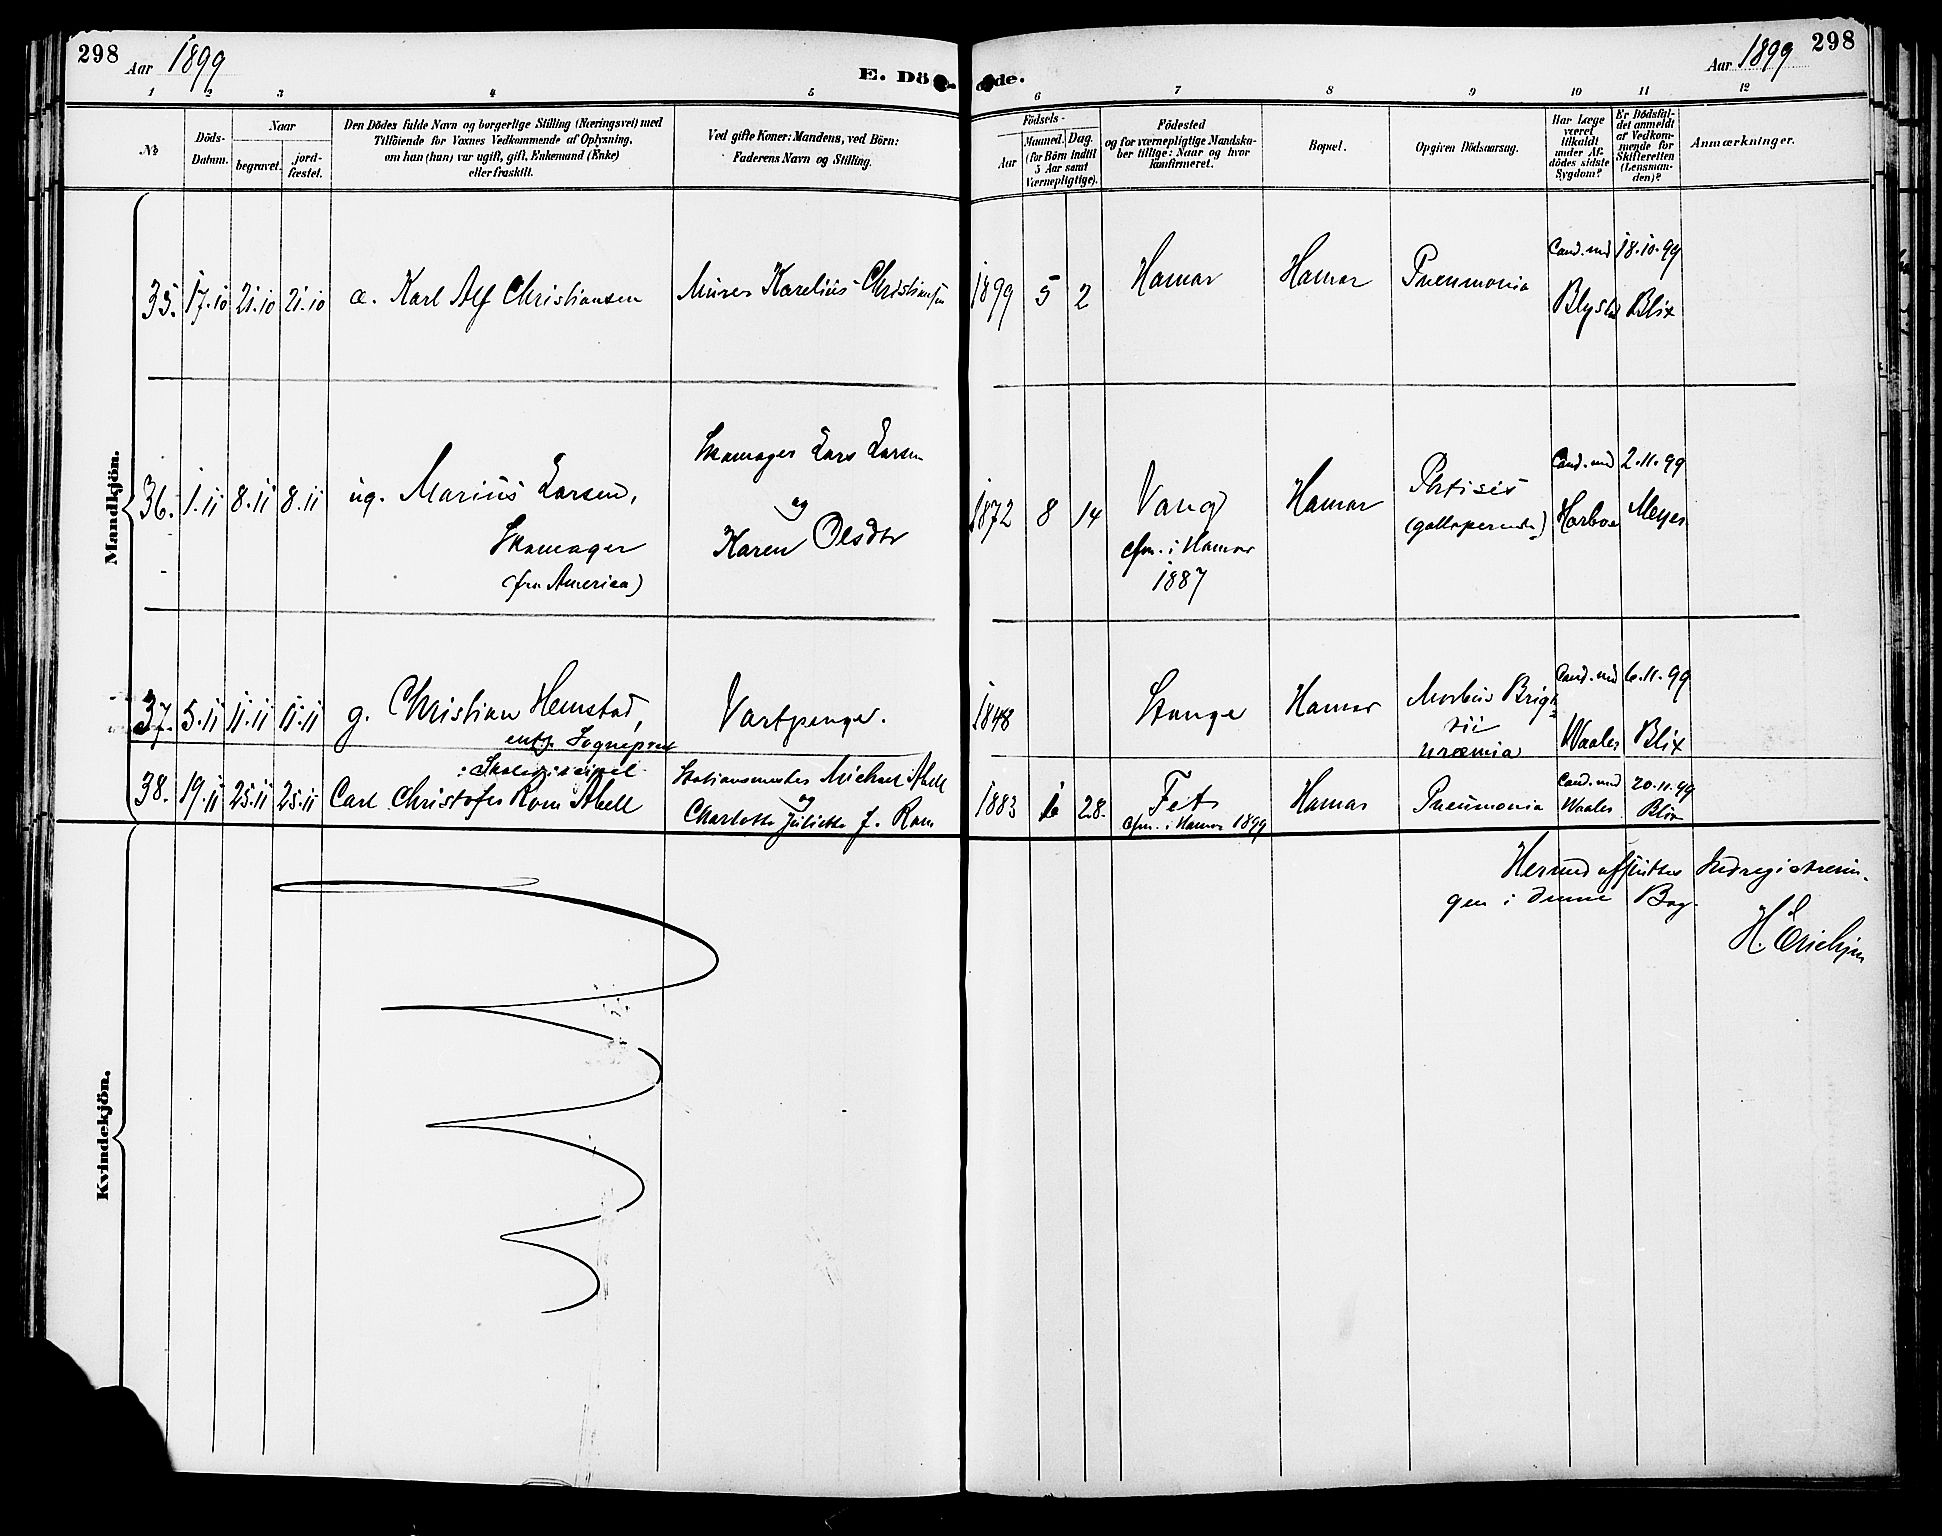 298
Aar 1899
E. Dö
de.
Aar 1899
298
1 2 3 4 5 6 7 8 9 10 11 12
№
Döds-
Datum.
Naar
begravet.
jord-
fæstet.
Den Dödes fulde Navn og borgerlige Stilling (Næringsvei) med
Tilföiende for Voxnes Vedkommende af Oplysning,
om han (hun) var ugift, gift, Enkemand (Enke)
eller fraskilt.
Ved gifte Koner: Mandens, ved Börn:
Faderens Navn og Stilling.
Födsels-
Aar
Maaned.
Dag.
(for Börn indtil
5 Aar samt
Værnepligtige).
Födested
og for værnepligtige Mandska-
ber tillige: Naar og hvor
konfirmeret.
Bopæl.
Opgiven Dödsaarsag.
Har Læge
været
tilkaldt
under Af-
dödes sidste
Sygdom?
Er Dödsfal-
det anmeldt
af Vedkom-
mende for
Skifteretten
(Lensman-
den)?
Anmærkninger.
Mandkjön.
35. 17.10 21.10 21.10 a. Karl Alf Christiansen
Murer Karelius Christiansen
1899 5 2 Hamar Hamar Pneumonia
Cand. med
18.10.99
Blix
36. 1.11 8.11 8.11 ug. Marius Larsen,
Skomager
(fra America)
Skomager Lars Larsen
og
Karen Olsdtr
1872 8 14 Vang
cfm. i Hamar
1887
Hamar
Phtisis
Cand. med
Harboe
2.11.99
Meyer
37. 5.11 11.11 11.11 g. Christian Hemstad,
Vartpenger.
1848 Stange Hamar
Morbus Brigh-
tii
uræmia
Cand. med
Waaler
6.11.99
Blix
38. 19.11 25.11 25.11
: Skolediscipel
Carl Christofer Rom Abell
Stationsmester Michael Abell
og
Charlotte Juliette f. Rom
1883 1 28. Fet
cfm. i Hamar 1899
Hamar Pneumonia
Cand. med
Waaler
20.11.99
Blix
Kvindekjön.
Hermed afsluttes Indregistrerin-
gen i denne Bog.